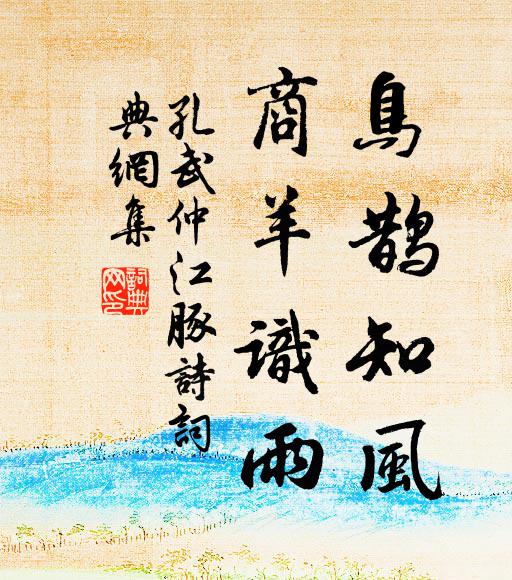 烏鵲知風
商羊識雨
孔武仲江豚詩詞
典網集
詞典
网印